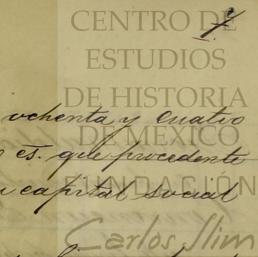 7
CENTRO DE
ESTUDIOS
DE HISTORIA
ochenta y cuatro
DE MÉXICO
es. que procedente
FUNDACIÓN
capital social
Carlos Slim